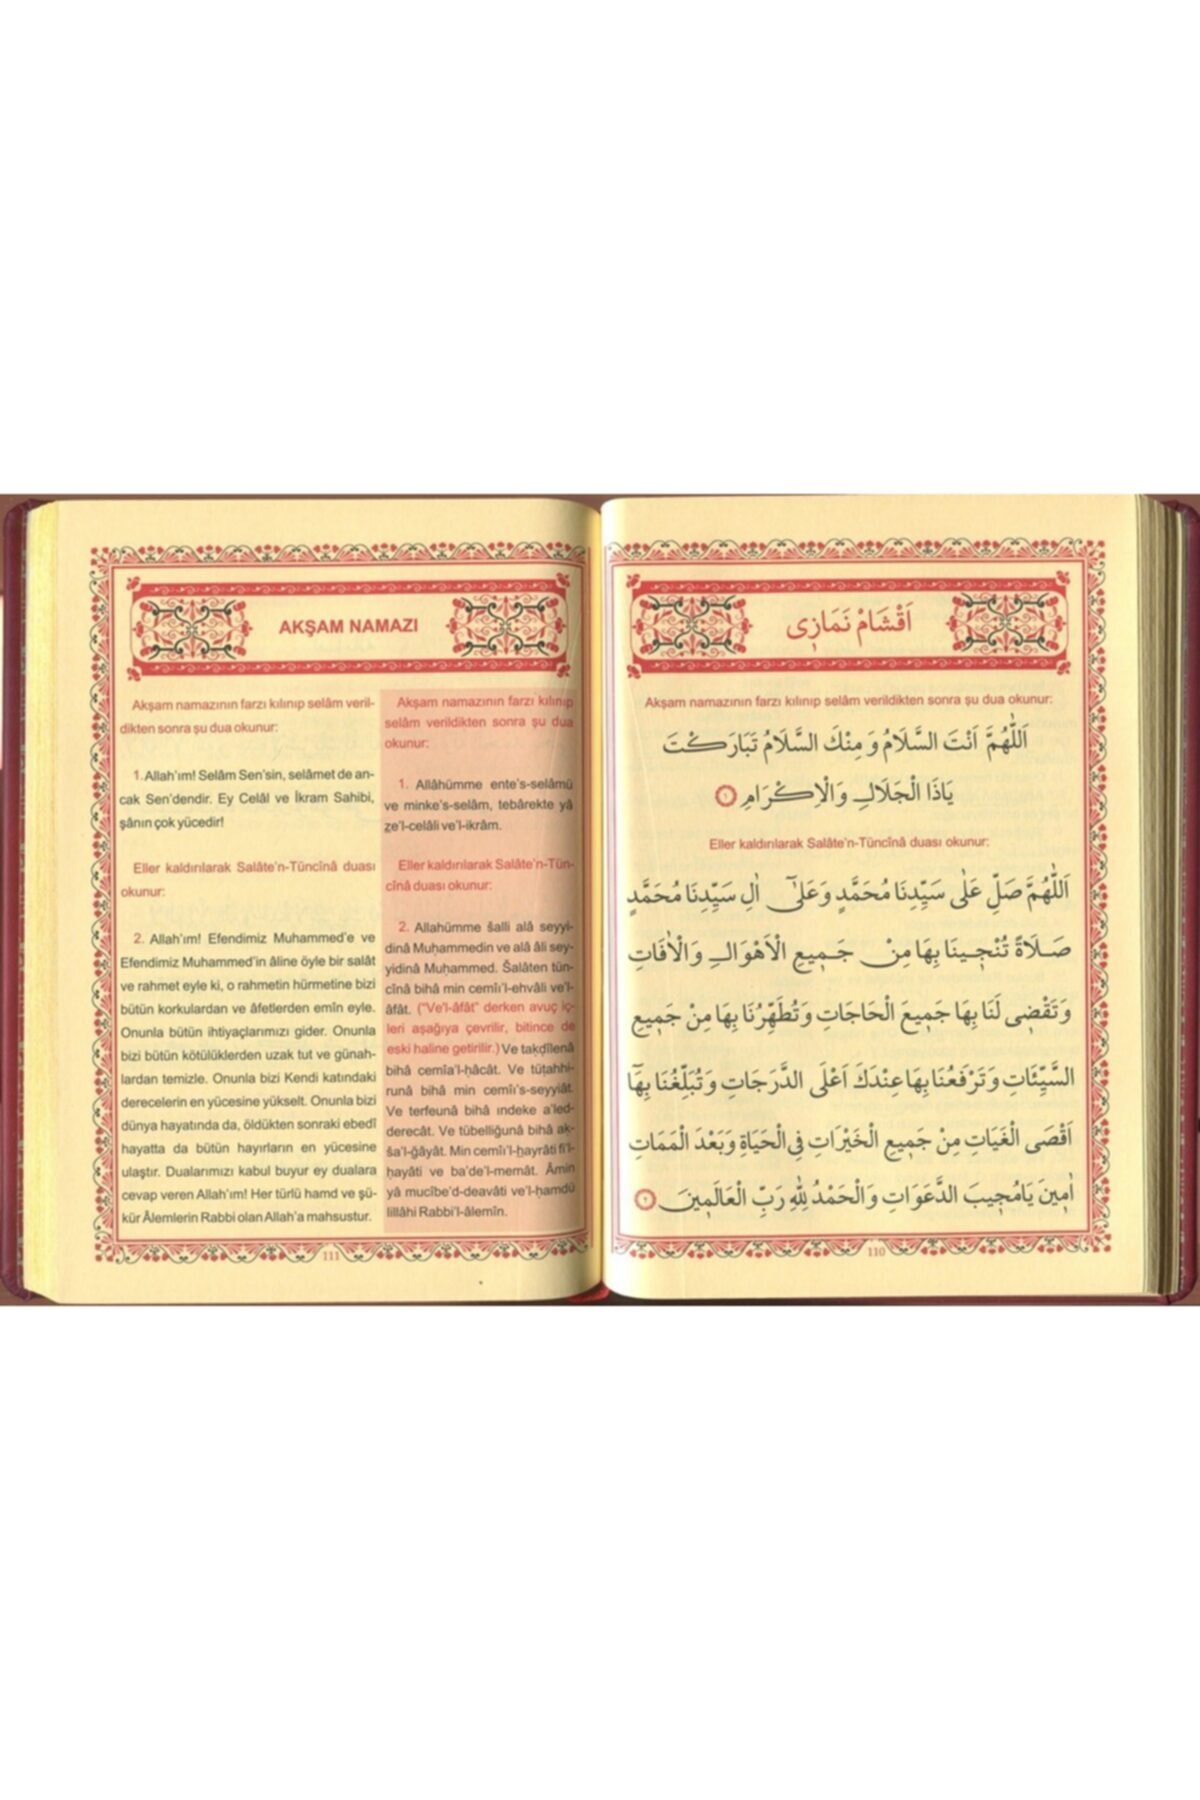 AKŞAM NAMAZI
Akşam namazının farzı kılınıp selâm veril-
dikten sonra şu dua okunur:
1. Allah'ım! Selâm Sen'sin, selâmet de an-
cak Sen'dendir. Ey Celâl ve İkram Sahibi,
şânın çok yücedir!
Eller kaldırılarak Salâte'n-Tüncînâ duası
okunur:
2. Allah'ım! Efendimiz Muhammed'e ve
Efendimiz Muhammed'in âline öyle bir salât
ve rahmet eyle ki, o rahmetin hürmetine bizi
bütün korkulardan ve âfetlerden emîn eyle.
Onunla bütün ihtiyaçlarımızı gider. Onunla
bizi bütün kötülüklerden uzak tut ve günah-
lardan temizle. Onunla bizi Kendi katındaki
derecelerin en yücesine yükselt. Onunla bizi
dünya hayatında da, öldükten sonraki ebedî
hayatta da bütün hayırların en yücesine
ulaştır. Dualarımızı kabul buyur ey dualara
cevap veren Allah'ım! Her türlü hamd ve şü-
kür Âlemlerin Rabbi olan Allah'a mahsustur.
Akşam namazının farzı kılınıp
selâm verildikten sonra şu dua
okunur:
1. Allâhümme ente's-selâmü
ve minke's-selâm, tebârekte yâ
ze'l-celâli ve'l-ikrâm.
Eller kaldırılarak Salâte'n-Tün-
cînâ duası okunur:
2. Allahümme šalli alâ seyyi-
dinâ Muḥammedin ve alâ âli sey-
yidinâ Muḥammed. Šalâten tün-
cînâ bihâ min cemîı'l-ehvâli ve'l-
âfât. ("Ve'l-âfât" derken avuç iç-
leri aşağıya çevrilir, bitince de
eski haline getirilir.) Ve takḍîlenâ
bihâ cemîa'l-ḥâcât. Ve tüṭahhi-
runâ bihâ min cemîı's-seyyiât.
Ve terfeunâ bihâ ındeke a'led-
derecât. Ve tübelliğunâ bihâ ak-
ša'l-ğâyât. Min cemîı'l-ḫayrâti fi'l-
ḥayâti ve ba'de'l-memât. Âmîn
yâ mucîbe'd-deavâti ve'l-ḥamdü
lillâhi Rabbi'l-âlemîn.
111
اَقْشَامْ نَمَازِى
Akşam namazının farzı kılınıp selâm verildikten sonra şu dua okunur:
اَللّٰهُمَّ اَنْتَ السَّلَامُ وَمِنْكَ السَّلَامُ تَبَارَكْتَ
يَاذَا الْجَلَالِ وَالْاِكْرَامِ ﴿١﴾
Eller kaldırılarak Salâte'n-Tüncînâ duası okunur:
اَللّٰهُمَّ صَلِّ عَلٰى سَيِّدِنَا مُحَمَّدٍ وَعَلٰٓى اٰلِ سَيِّدِنَا مُحَمَّدٍ
صَلَاةً تُنْجِينَا بِهَا مِنْ جَمِيعِ الْاَهْوَالِ وَالْاٰفَاتِ
وَتَقْضِى لَنَا بِهَا جَمِيعَ الْحَاجَاتِ وَتُطَهِّرُنَا بِهَا مِنْ جَمِيعِ
السَّيِّئَاتِ وَتَرْفَعُنَا بِهَا عِنْدَكَ اَعْلَى الدَّرَجَاتِ وَتُبَلِّغُنَا بِهَٓا
اَقْصَى الْغَيَاتِ مِنْ جَمِيعِ الْخَيْرَاتِ فِى الْحَيَاةِ وَبَعْدَ الْمَمَاتِ
اٰمِينَ يَا مُجِيبَ الدَّعَوَاتِ وَالْحَمْدُ لِلّٰهِ رَبِّ الْعَالَمِينَ ﴿٢﴾
110